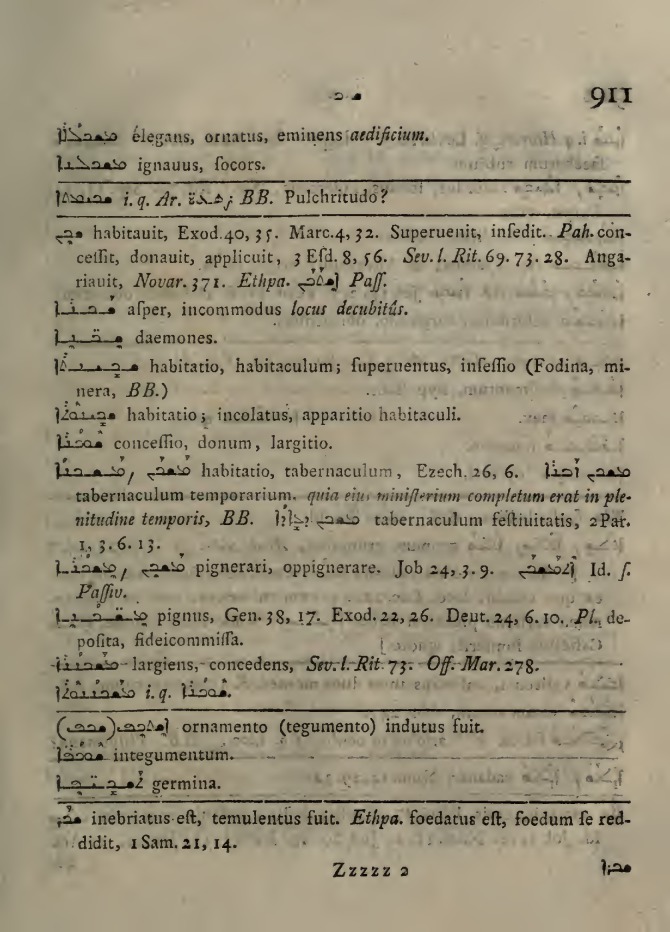 ܫ ܟ 911
ܡܫܟܠܠܐ élegans, ornatus, eminens aedificium.
ignauus, ſocors.
i. q. Ar. BB. Pulchritudo?
ܫܟܢ habitauit, Exod. 40, 35. Marc. 4, 32. Superuenit, inſedit. Pah. con-
ceſſit, donauit, applicuit, 3 Eſd. 8, 56. Sev. l. Rit. 69. 73. 28. Anga-
riauit, Novar. 371. Ethpa. ܐܫܬܟܢ Paſſ.
aſper, incommodus locus decubitûs.
daemones.
ܫܟܝܢܬܐ habitatio, habitaculum; ſuperuentus, inſeſſio (Fodina, mi-
nera, BB.)
habitatio; incolatus, apparitio habitaculi.
ܫܘܟܢܐ conceſſio, donum, largitio.
ܡܫܟܢ, ܡܫܟܢܐ habitatio, tabernaculum, Ezech. 26, 6. ܡܫܟܢ ܙܒܢܐ
tabernaculum temporarium, quia eius miniſterium completum erat in ple-
nitudine temporis, BB. ܡܫܟܢ tabernaculum feſtiuitatis, 2 Par.
1, 3. 6. 13.
ܡܫܟܢ, ܡܫܟܢܐ pignerari, oppignerare. Job 24, 3. 9. ܐܬܡܫܟܢ Id. ſ.
Paſſiv.
pignus, Gen. 38, 17. Exod. 22, 26. Deut. 24, 6. 10. Pl. de-
poſita, fideicommiſſa.
ܡܫܟܢܢܐ largiens, concedens, Sev. l. Rit. 73. Off. Mar. 278.
ܡܫܟܢܢܘܬܐ i. q. ܫܘܟܢܐ.
ornamento (tegumento) indutus fuit.
integumentum.
germina.
ܫܟܪ inebriatus eſt, temulentus fuit. Ethpa. foedatus eſt, foedum ſe red-
didit, 1 Sam. 21, 14.
Zzzzz 2 ܫܟܪܐ